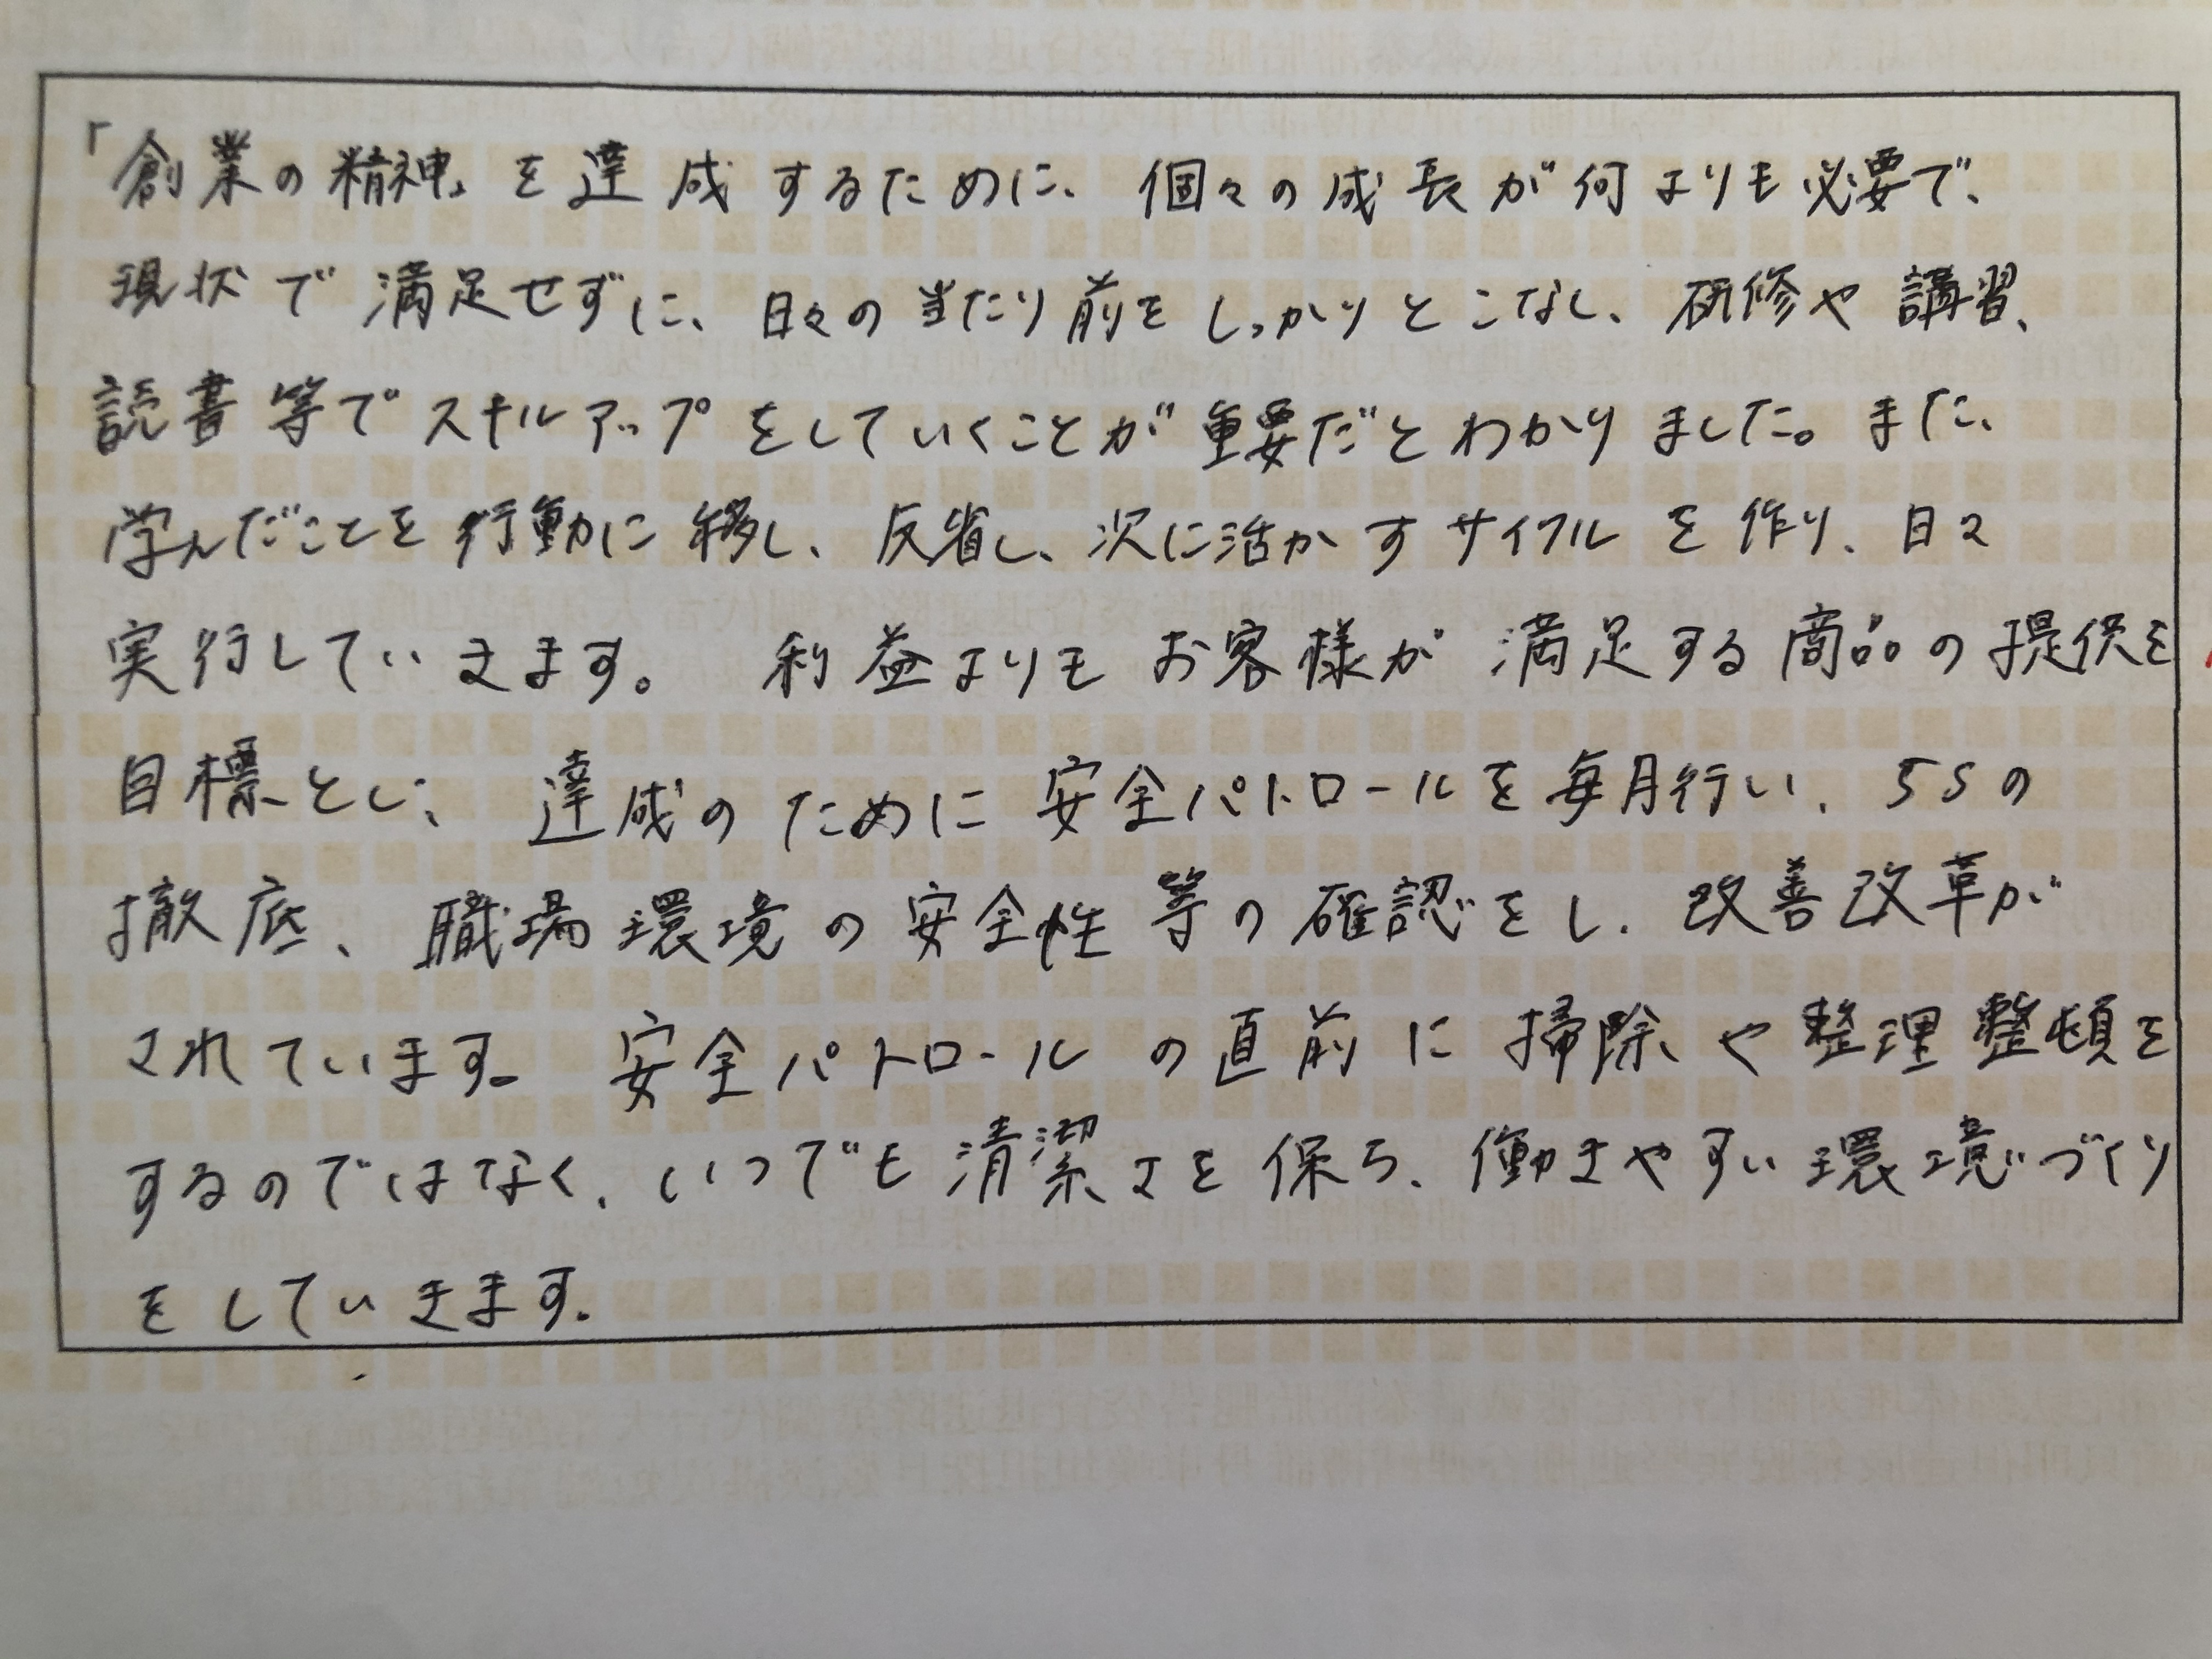 「創業の精神」を達成するために、個々の成長が何よりも必要で、
現状で満足せずに、日々の当たり前をしっかりとこなし、研修や講習、
読書等でスキルアップをしていくことが重要だとわかりました。また、
学んだことを行動に移し、反省し、次に活かすサイクルを作り、日々
実行していきます。利益よりもお客様が満足する商品の提供を
目標とし、達成のために安全パトロールを毎月行い、5Sの
徹底、職場環境の安全性等の確認をし、改善改革が
されています。安全パトロールの直前に掃除や整理整頓を
するのではなく、いつでも清潔さを保ち、働きやすい環境づくり
をしていきます。